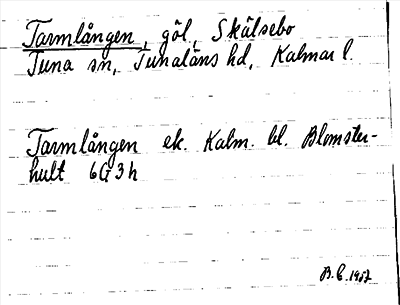 Tarmlången, göl, Skälsebo
Tuna sn, Tunaläns hd, Kalmar l.
Tarmlången ek. Kalm. bl. Blomster-
hult 6G3h
B.C. 1957